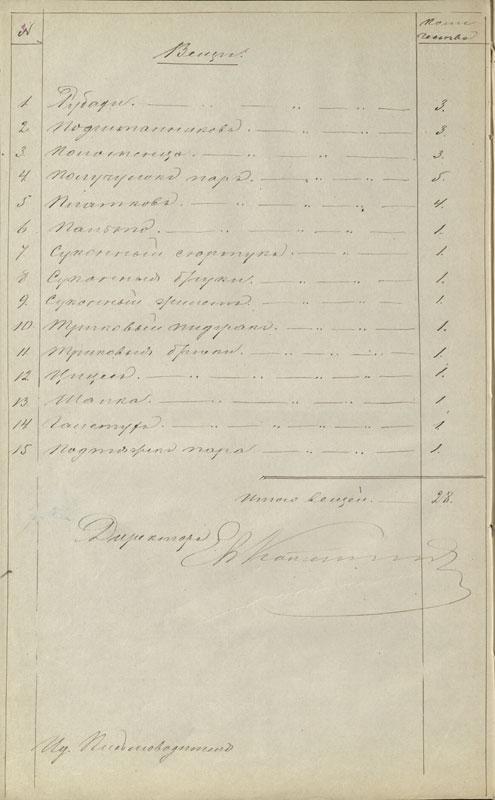 №
Коли-
чество
Вещи:
1. Рубахи. — „ — „ — „ — 3.
2. Подштанниковъ — „ — „ — „ — 3.
3. Полотенца — „ — „ — „ — 3.
4. Получулокъ паръ. — „ — „ — 5.
5. Платковъ — „ — „ — „ — 4.
6. Пальто — „ — „ — „ — 1.
7. Суконный сюртукъ — „ — „ — 1.
8. Суконныя брюки. — „ — „ — 1.
9. Суконный жилетъ — „ — „ — 1.
10. Триковый пиджакъ — „ — „ — 1.
11. Триковыя брюки. — „ — „ — 1.
12. — „ — „ — „ — 1.
13. Шапка. — „ — „ — „ — 1
14. Галстухъ — „ — „ — „ — 1.
15. Подтяжекъ пара — „ — „ — 1.
Итого вещей. — 28.
Директоръ
Ид. Письмоводителя